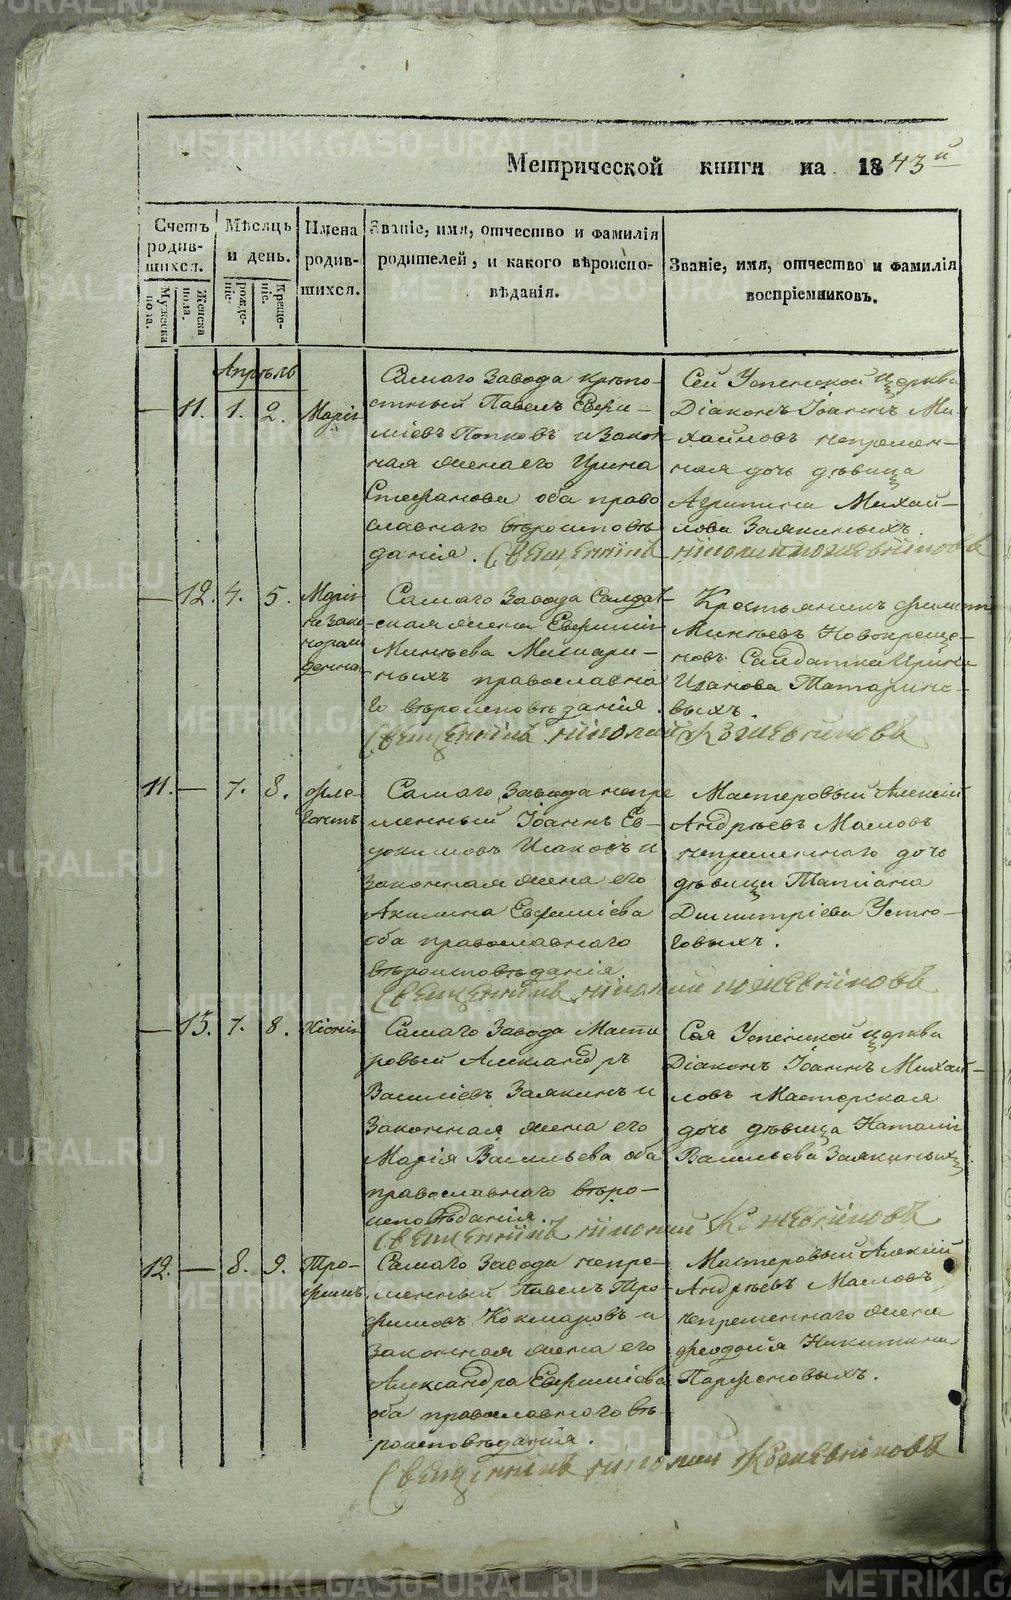 Метрической книги на 1843й
Счетъ родив-шихся.
Мужеска пола.
Женска пола.
Мѣсяцъ и день.
рожде-ніе.
Креще-ніе.
Имена родив-шихся.
Званіе, имя, отчество и фамилія
родителей, и какого вѣроиспо-
вѣданія.
Званіе, имя, отчество и фамилія
воспріемниковъ.
Апрѣль
— 11. 1. 2. Марія
Самаго Завода крѣпо-
стный Павелъ Евфи-
міевъ Попковъ и Закон
ная жена его Ирина
Стефанова оба право
славнаго вѣроисповѣ
данія. Священникъ
Сей Успенской церкви
Діаконъ Іоаннъ Ми-
хайловъ непремен-
ная дочь дѣвица
Агрипина Михай-
лова Заякиныхъ.
Николай Кожевниковъ
— 12. 4. 5. Марія
незако
норож
денна
Самаго Завода Салдат
ская жена Евфимія
Минѣева
православна
го вѣроисповѣданія.
Священникъ Николай Кожевниковъ
Крестьянинъ
Минѣевъ Новокреще-
новъ Салдатка Ирина
Иванова Татарино-
выхъ.
11. — 7. 8. Фле-
гонтъ
Самаго Завода непре
менный Іоаннъ Ев-
докимовъ Исаковъ и
Законная жена его
Акилина Евфиміева
оба православнаго
вѣроисповѣданія.
Священникъ Николай Кожевниковъ
Мастеровый Алексій
Андрѣевъ Масловъ
непременнаго дочь
дѣвица Татіана
Димитріева Устю-
говыхъ.
— 13. 7. 8. Хіонія
Самаго Завода Масте
ровый Александръ
Василіевъ Заякинъ и
Законная жена его
Марія Васильева оба
православнаго вѣро-
исповѣданія.
Священникъ Николай Кожевниковъ
Сея Успенской церкви
Діаконъ Іоаннъ Михай-
ловъ Мастерская
дочь дѣвица Наталія
Васильева Заякиныхъ.
12. — 8. 9. Тро-
фимъ
Самаго Завода непре-
менный Павелъ Тро-
фимовъ Кокшаровъ и
Законная жена его
Александра Евфиміева
оба православнаго вѣ-
роисповѣданія.
Священникъ Николай Кожевниковъ
Мастеровый Алексій
Андрѣевъ Масловъ
непременнаго жена
Феодосія Никитина
Парфеновыхъ.
METRIKI.GASO-URAL.RU